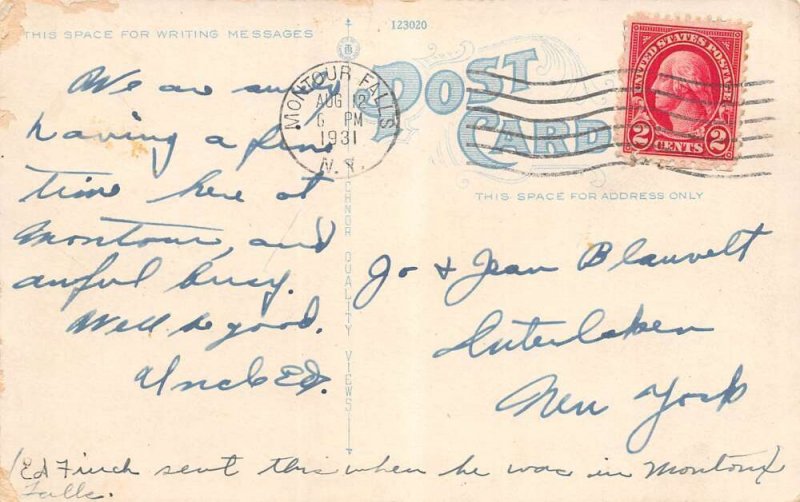 THIS SPACE FOR WRITING MESSAGES
123020
POST
CARD
THIS SPACE FOR ADDRESS ONLY
MONTOUR FALLS
AUG 12
6 PM
1931
N.Y.
UNITED STATES POSTAGE
2 CENTS 2
We are surely
having a fine
time here at
Montour, and
awful busy.
Well be good.
Uncle Ed.
QUALITY VIEWS
Jo & Jean Blauvelt
Interlaken
New York
(Ed Finch sent this when he was in Montour
Falls.